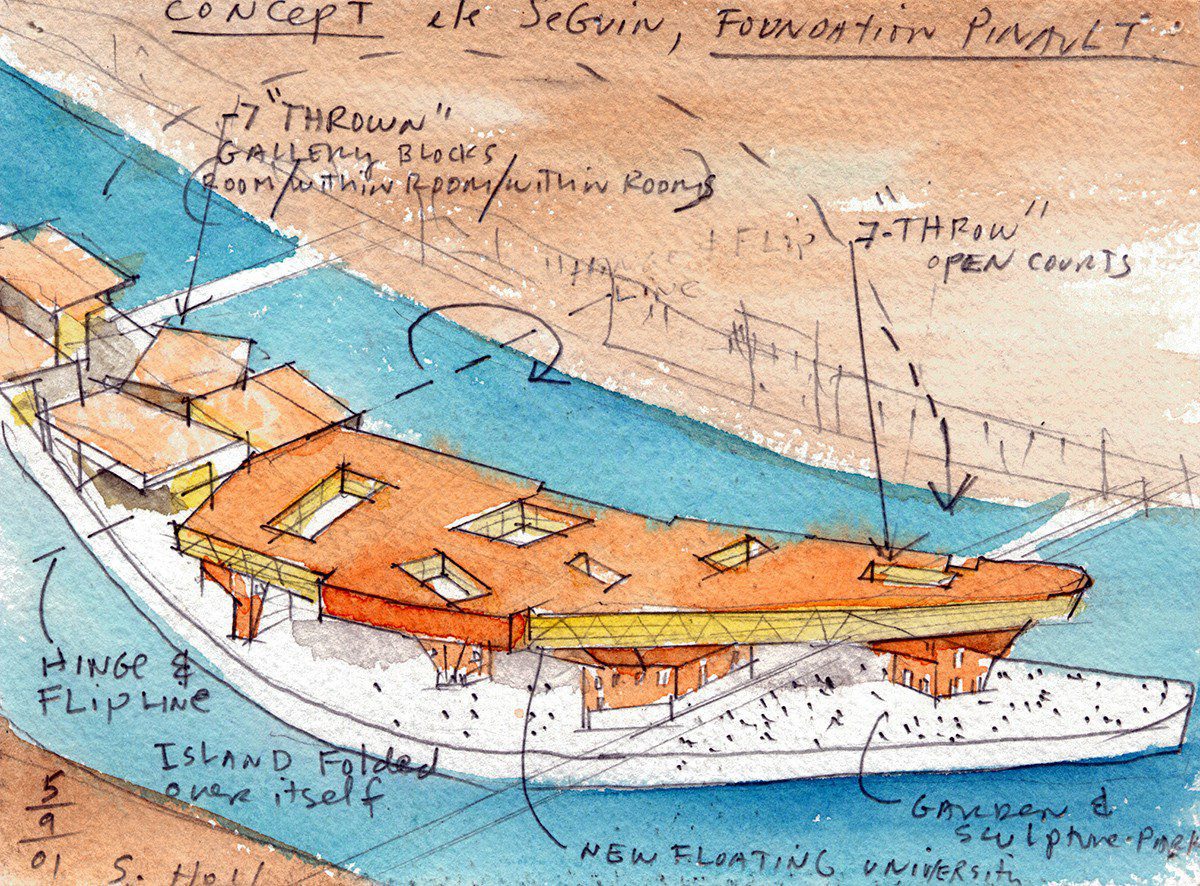 CONCEPT ile SeGuin, FOUNDATION PINAULT
7 "THROWN"
GALLERY BLOCKS
ROOM/within ROOM/within ROOMS
7 - "THROW"
OPEN COURTS
HINGE & FLIP
LINE
HINGE &
FLIP LINE
ISLAND Folded
over itself
GARDEN &
Sculpture-PARK
NEW FLOATING UNIVERSITY
5
9
01
S. Holl